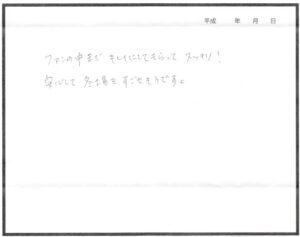 平成 年 月 日
ファンの中まで キレイにしてもらって スッキリ!
安心して 冬場を すごせそうですよ